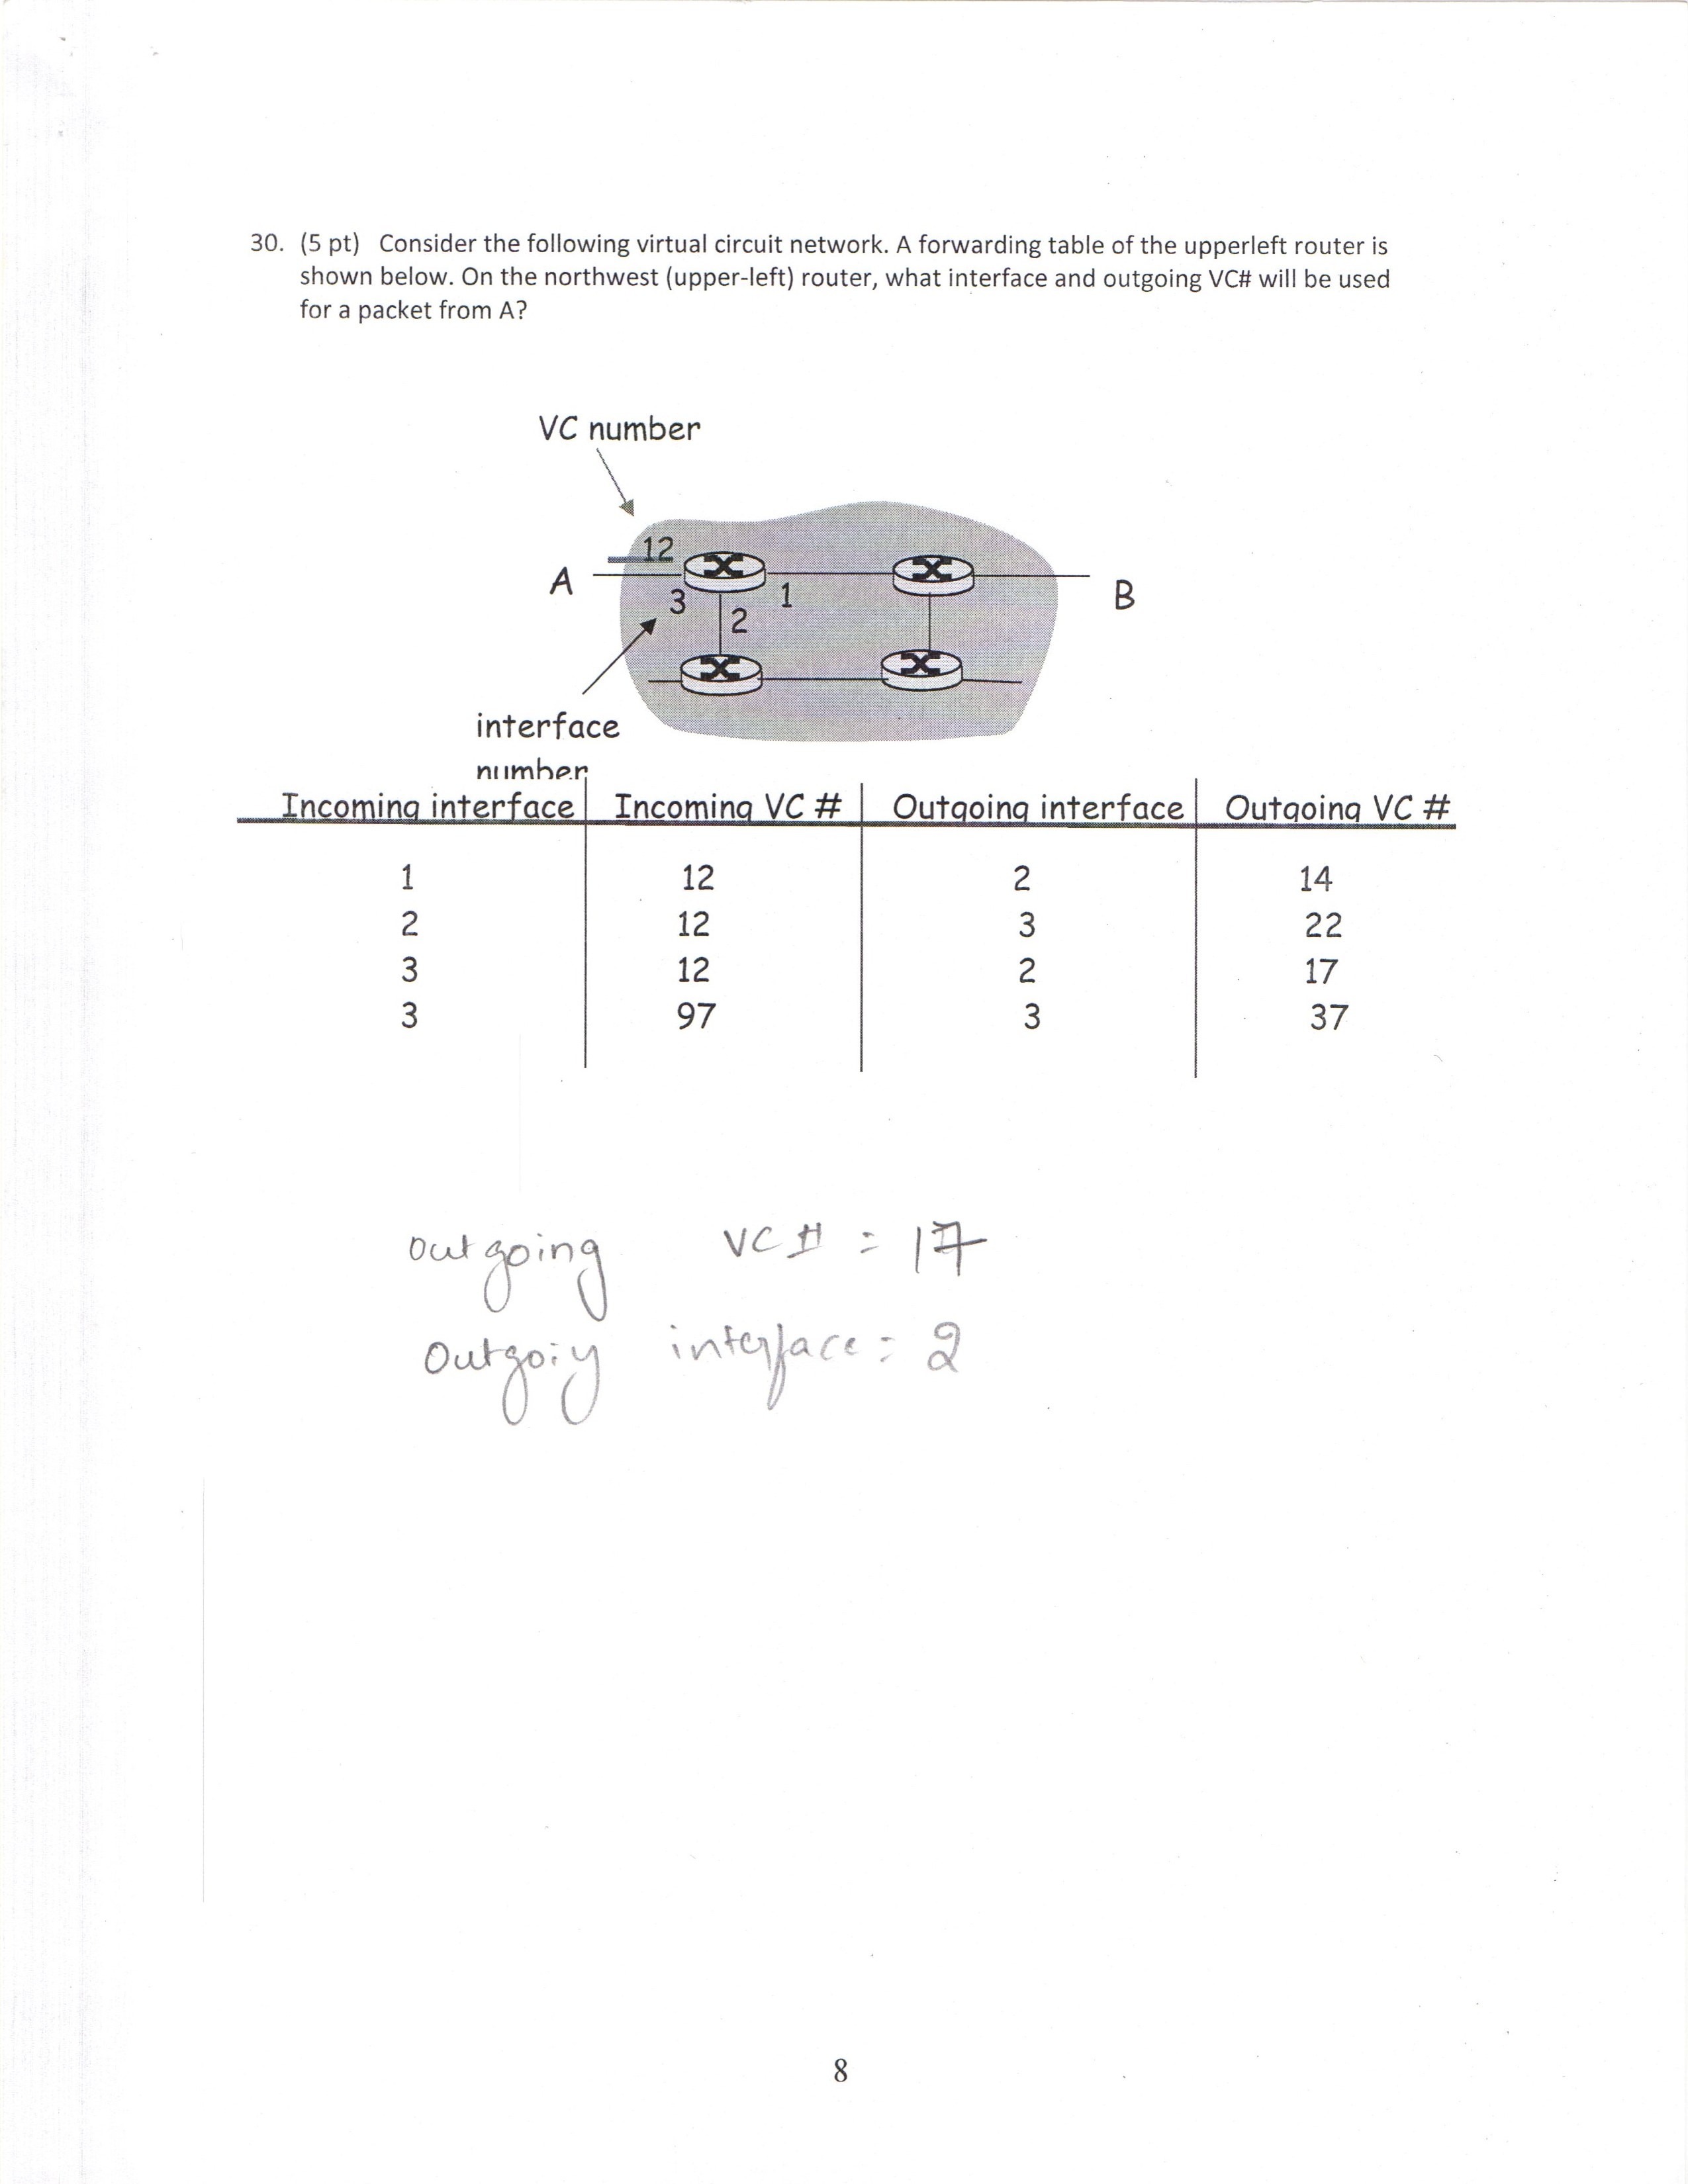 30. (5 pt) Consider the following virtual circuit network. A forwarding table of the upperleft router is
shown below. On the northwest (upper-left) router, what interface and outgoing VC# will be used
for a packet from A?
VC number
12
A
3
1
2
B
interface
number
Incoming interface Incoming VC # Outgoing interface Outgoing VC #
1 12 2 14
2 12 3 22
3 12 2 17
3 97 3 37
Outgoing VC# = 17
Outgoiy interface = 2
8